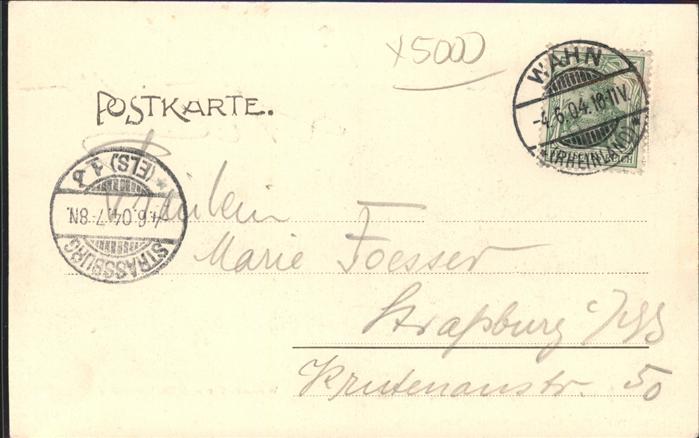 x5000
WAHN
-4.6.04.10-11V.
(RHEINLAND)*
POSTKARTE.
STRASSBURG
4.6.04.7-8N.
*(ELS) 1
Fräulein
Marie Foesser
Straßburg i/
Krutenaustr. 50